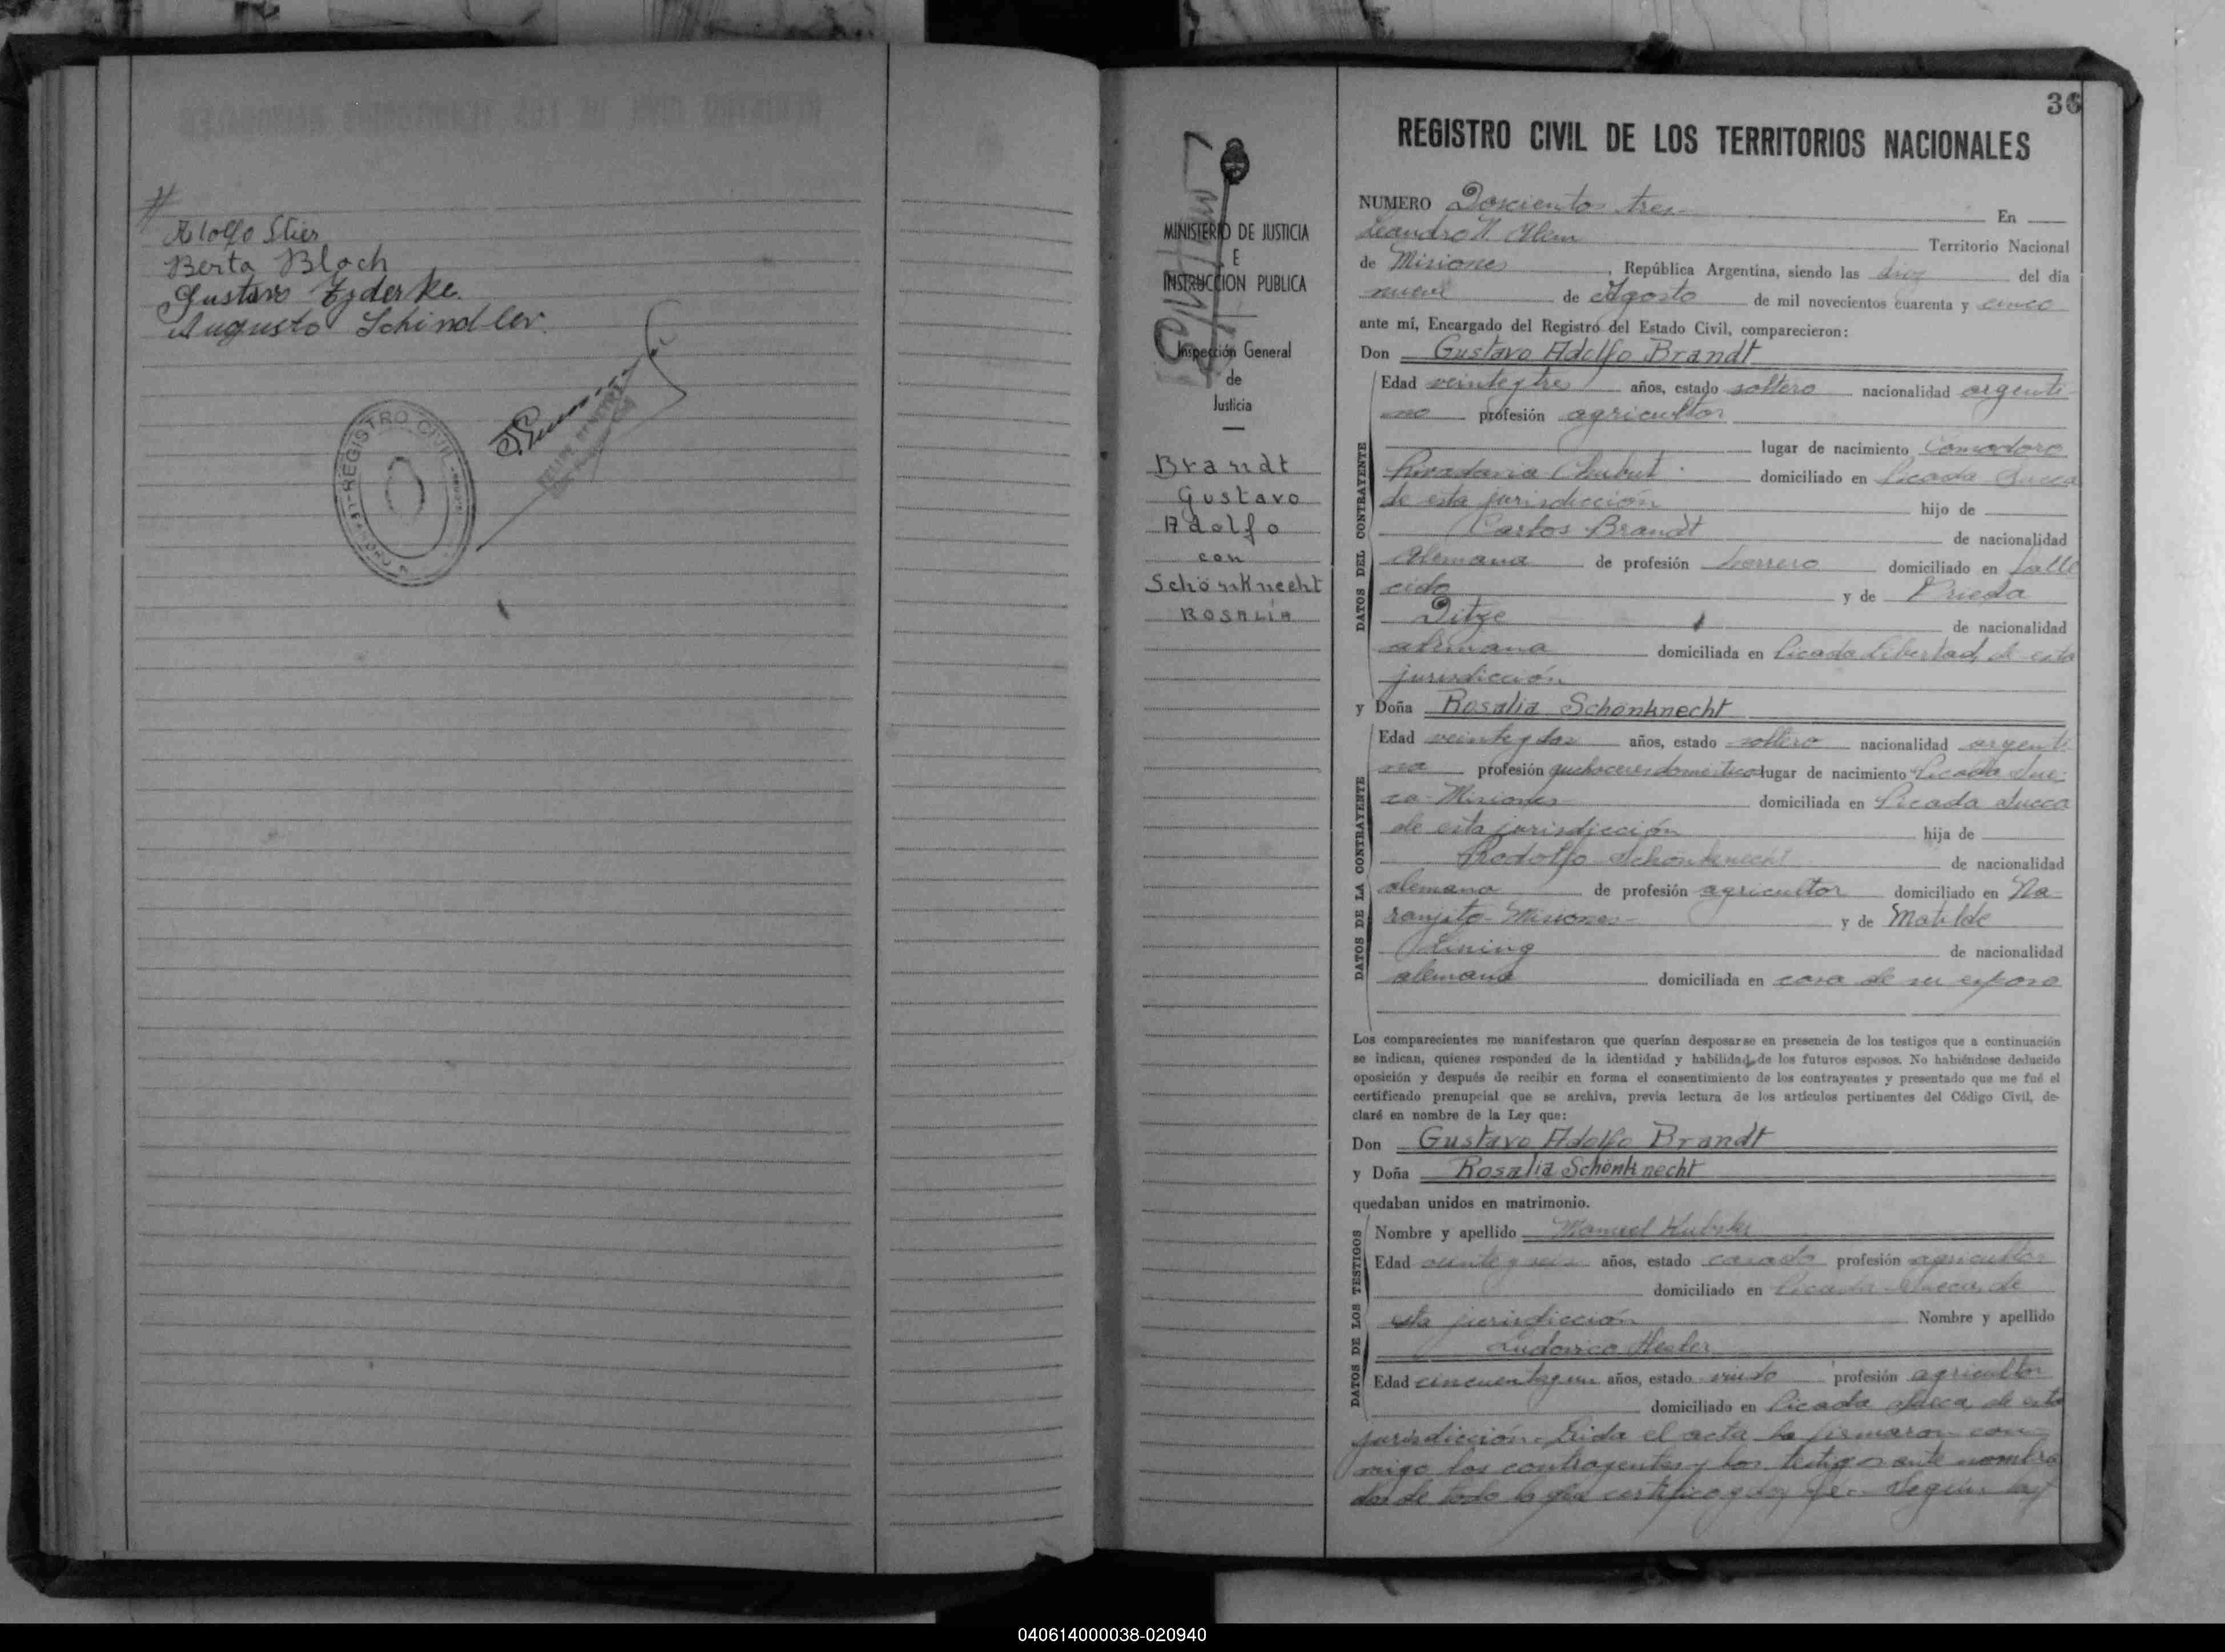 Adolfo Stier
Berta Bloch
Gustavo
Augusto Schindler.
REGISTRO CIVIL
36
REGISTRO CIVIL DE LOS TERRITORIOS NACIONALES
MINISTERIO DE JUSTICIA
E
INSTRUCCION PUBLICA
Inspección General
de
Justicia
Brandt
Gustavo
Adolfo
con
Schönknecht
ROSALÍA
NUMERO Doscientos tres En
Leandro N. Alem Territorio Nacional
de Misiones, República Argentina, siendo las diez del día
nueve de Agosto de mil novecientos cuarenta y cinco
ante mí, Encargado del Registro del Estado Civil, comparecieron:
Don Gustavo Adolfo Brandt
DATOS DEL CONTRAYENTE
Edad veintiytres años, estado soltero nacionalidad argenti-
no profesión agricultor
lugar de nacimiento Comodoro
Rivadavia Chubut domiciliado en Picada Sueca
de esta jurisdicción hijo de
Carlos Brandt de nacionalidad
alemana de profesión herrero domiciliado en falle
cido y de Frieda
Ditze de nacionalidad
alemana domiciliada en Picada Libertad, de esta
jurisdicción
y Doña Rosalia Schönknecht
DATOS DE LA CONTRAYENTE
Edad veintiydos años, estado soltera nacionalidad argenti-
na profesión quehaceres domésticos lugar de nacimiento Picada Sue-
ca-Misiones domiciliada en Picada Sueca
de esta jurisdicción hija de
Rodolfo Schönknecht de nacionalidad
alemana de profesión agricultor domiciliado en Na-
ranjito-Misiones- y de Matilde
Lining de nacionalidad
alemana domiciliada en casa de su esposo
Los comparecientes me manifestaron que querían desposarse en presencia de los testigos que a continuación
se indican, quienes responden de la identidad y habilidad de los futuros esposos. No habiéndose deducido
oposición y después de recibir en forma el consentimiento de los contrayentes y presentado que me fué el
certificado prenupcial que se archiva, previa lectura de los artículos pertinentes del Código Civil, de-
claré en nombre de la Ley que:
Don Gustavo Adolfo Brandt
y Doña Rosalia Schönknecht
quedaban unidos en matrimonio.
DATOS DE LOS TESTIGOS
Nombre y apellido Manuel
Edad veinte y seis años, estado casado profesión agricultor
domiciliado en Picada Sueca, de
esta jurisdicción Nombre y apellido
Ludovico Hesler
Edad cincuentayun años, estado viudo profesión agricultor
domiciliado en Picada Sueca, de esta
jurisdicción. Leida el acta la firmaron con-
migo los contrayentes y los testigos ante nombra
dos de todo lo que certifico y doy fe.- Siguen las
040614000038-020940